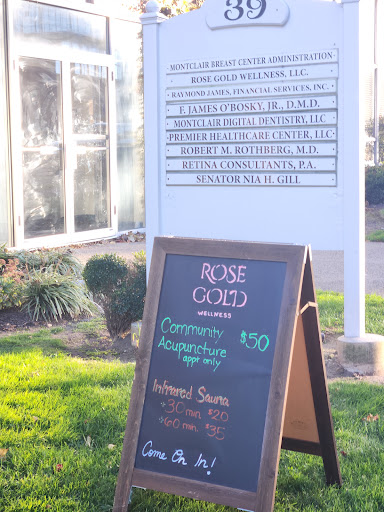 39
MONTCLAIR BREAST CENTER ADMINISTRATION
ROSE GOLD WELLNESS, LLC.
RAYMOND JAMES, FINANCIAL SERVICES, INC.
F. JAMES O'BOSKY, JR., D.M.D.
MONTCLAIR DIGITAL DENTISTRY, LLC
PREMIER HEALTHCARE CENTER, LLC
ROBERT M. ROTHBERG, M.D.
RETINA CONSULTANTS, P.A.
SENATOR NIA H. GILL
ROSE
GOLD
WELLNESS
Community
Acupuncture $50
appt only
Infrared Sauna
30 min $20
60 min $35
Come On In!